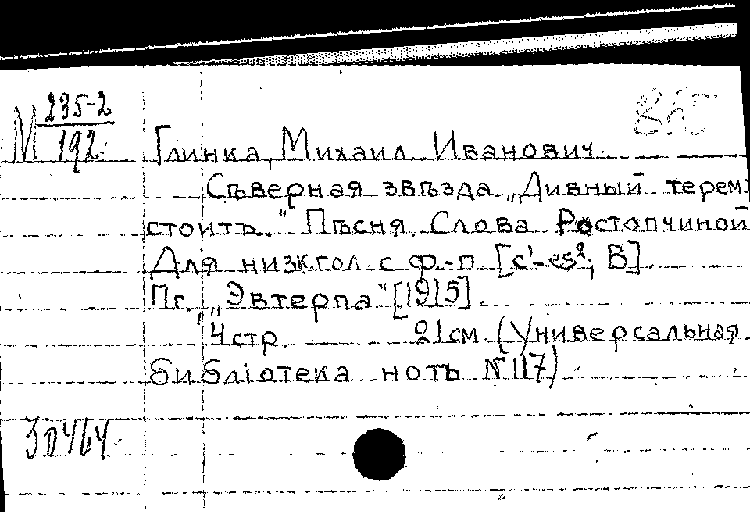 М 235-2
192
Глинка, Михаил Иванович.
Съверная звъзда „Дивный терем
стоитъ." Пъсня. Слова Ростопчиной
Для низк.гол. с ф.-п. [c¹-es²; В]
Пг., „Эвтерпа" [1915]
4 стр. 21 см. (Универсальная
библіотека нотъ № 117)
30464